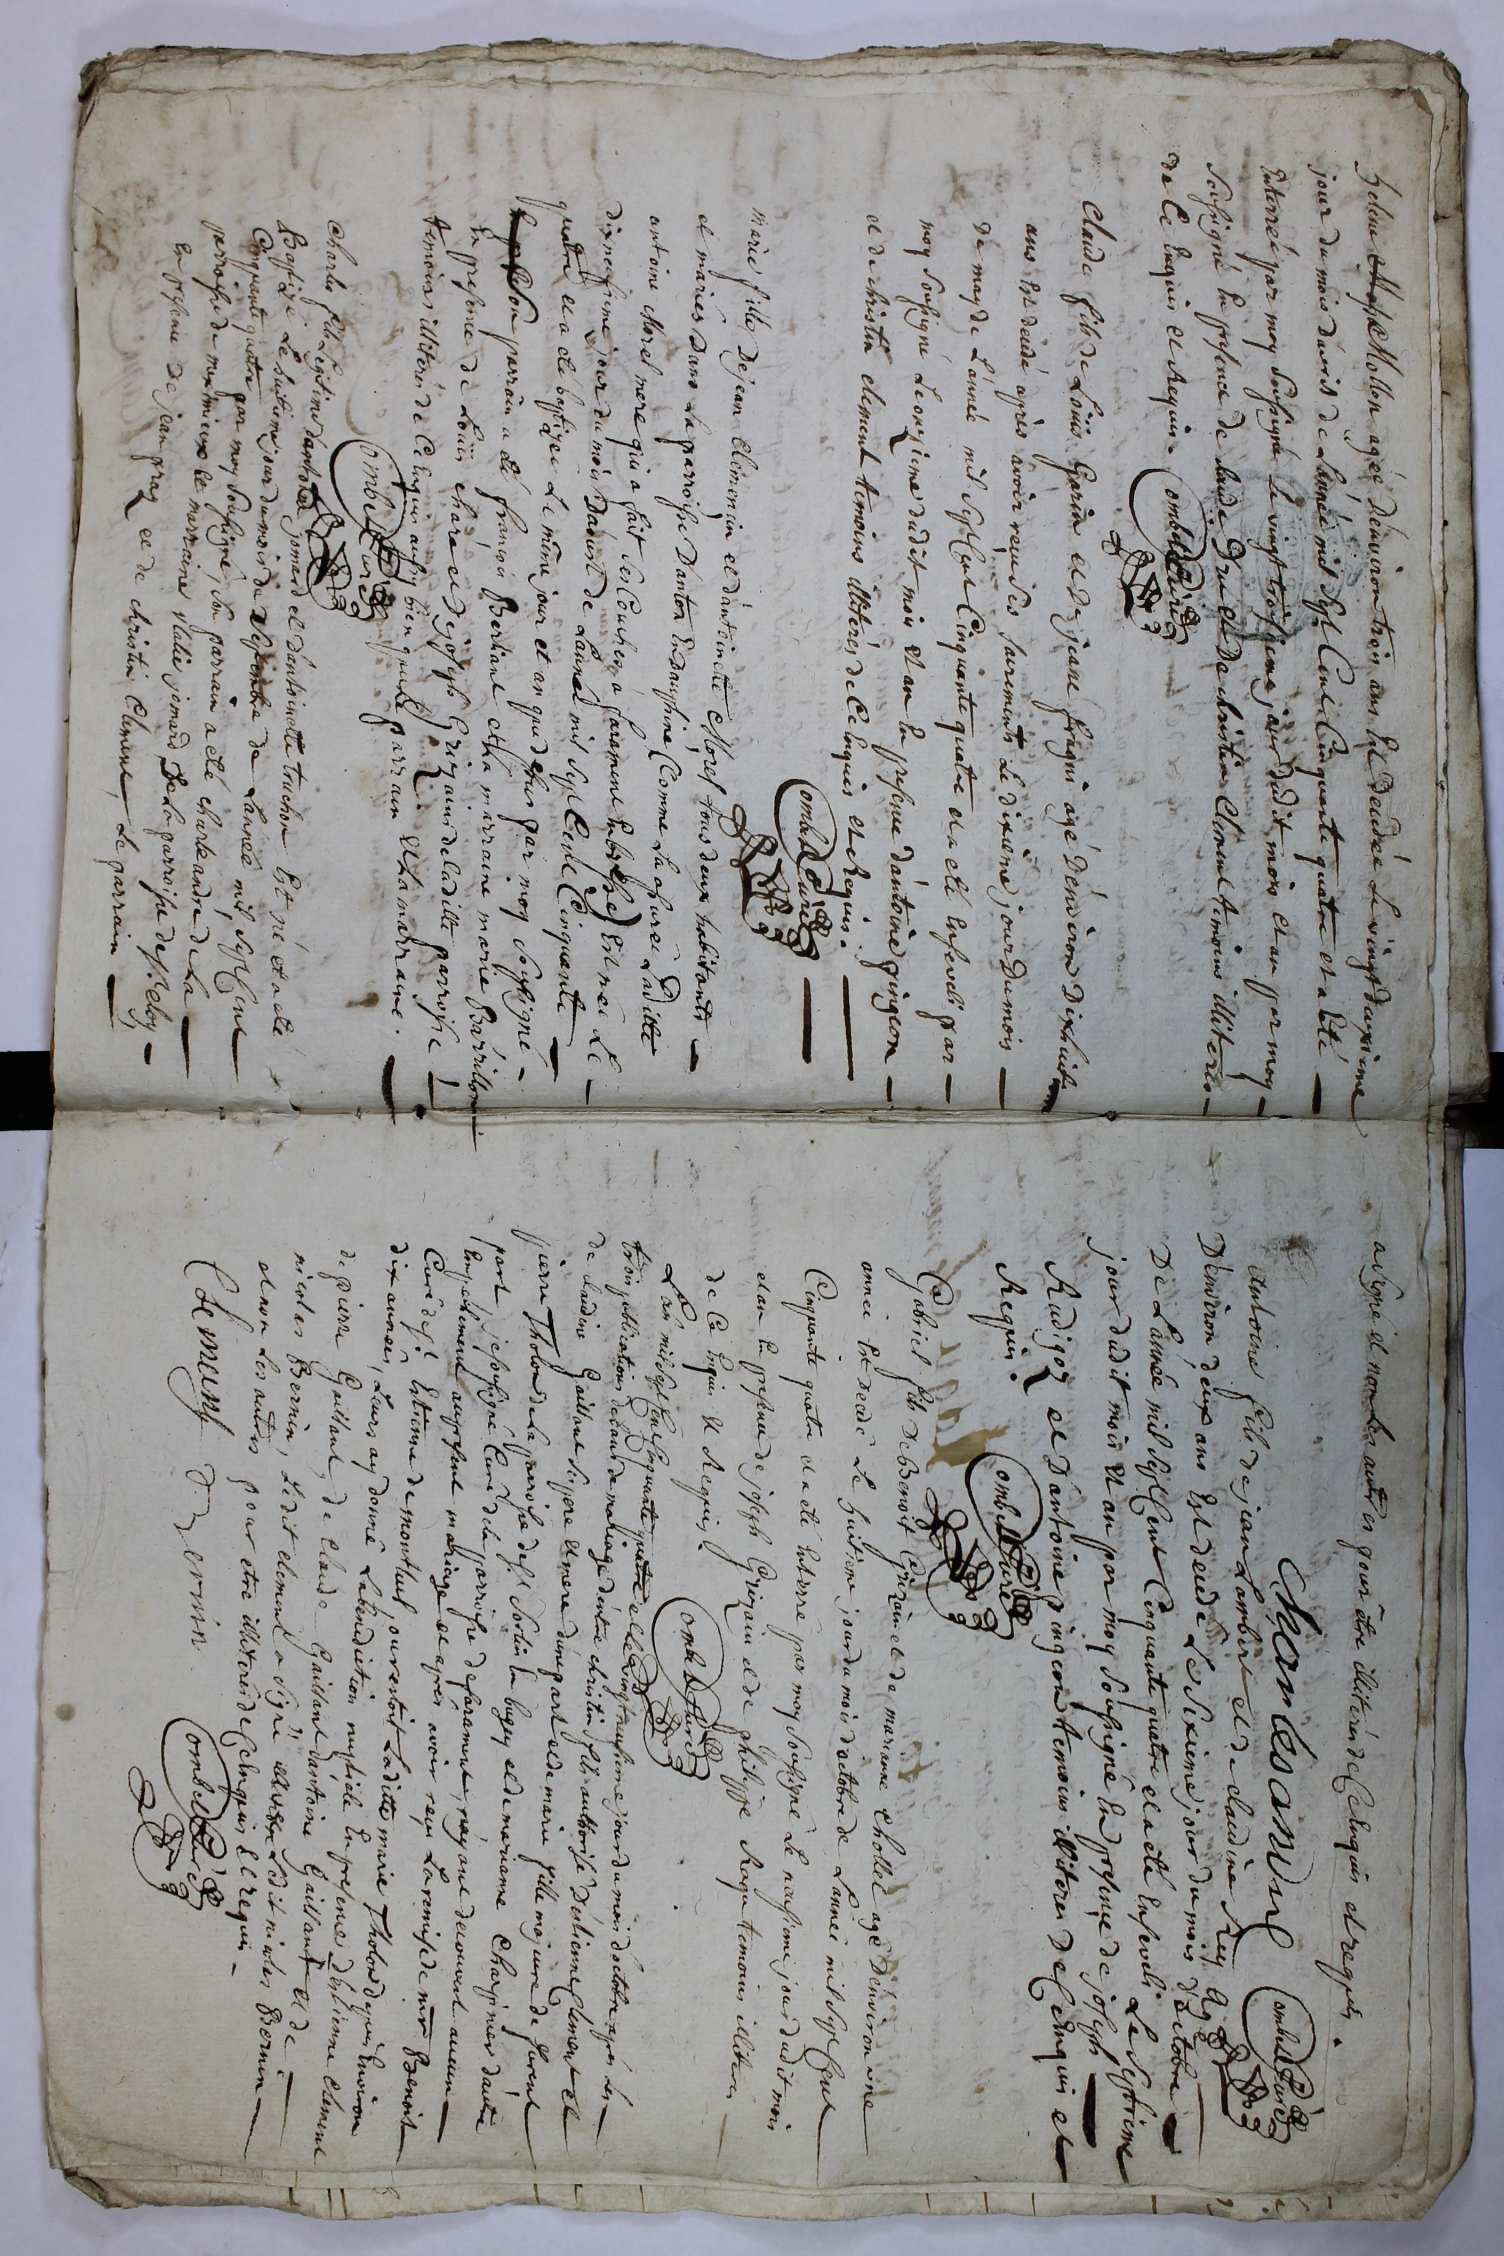 Mollon agée denviron trois ans Est decedée Le vingt deuxieme
jour du mois davril de Lannée mil sept Cent Cinquante quatre et a Eté
Enterrée par moy soussigné Le vingt troisieme jour dudit mois et an par moy
soussigné En presence de claude et de christin Clement temoins illiterés
de Ce Enquis et Requis. Combet Curé
Claude fils de Loüis Gorin et de jeane frigui agé denviron Dixhuit
ans Est decedé après avoir reçu ses sacrements Le dixiéme jour Du mois
de may de L'année mil sept Cent Cinquante quatre et a eté Enseveli par
moy soussigné Le onzieme dudit mois et an En presence dantoine pingeon
et de christin clement temoins illiterés de Ce Enquis et Requis.
Combet Curé
marie fille De jean clémençin et dantoinette Morel tous deux habitants
et mariés Dans La parroisse Danton En dauphiné Comme La assuré Laditte
antoine Morel mere qui a fait ses Couches a faramens En bresse Est née Le
dix neufvieme jour du mois Daoust de Lannée mil sept Cent Cinquante
quatre et a eté baptizée Le même jour et an que dessus par moy soussigné
Son parrain a eté françois Berliant et La marraine marie Barrillon
En presence de Loüis chara et De joseph Grizain de laditte parroisse
temoins illiterés de Ce Enquis aussi bien que Le parrain et La marraine.
Combet Curé
Charle fils Legitime dantoine jomard et dantoinette truchon Est né et a eté
Baptizé Le huitieme jour du mois de Septembre de Lannée mil sept Cent
Cinquante quatre par moy soussigné, Son parrain a eté charle andré de La
parroisse de miximieux Le marraine Jomard De La parroisse de st. Eloy
En presence De jean et de christin Clement, Le parrain
a signé et non Les autres pour être illiterés de Ce Enquis et requis.
Charles andre Combet Curé
Antoine fils de jean Lambert et de claudine Rey agé
Denviron deux ans Est decedé Le Sixieme jour du mois D'octobre
De Lannée mil sept Cent Cinquante quatre et a eté Enseveli Le Septieme
jour dudit mois et an par moy soussigné En presence de joseph
Rudigoz et Dantoine pingeon temoins illiterés De Ce Enquis et
Requis. Combet Curé
Gabriel fils De Benoit Grizain et de marianne chollet agé Denviron une
année Est Decedé Le huitieme jour du mois d'octobre de L'année mil sept Cent
Cinquante quatre et a eté Enterré par moy soussigné Le neufvieme jour dudit mois
et an En presence de joseph Grizain et de philippe Raqu temoins illiterés
de Ce Enquis et Requis. Combet Curé
L'an mil sept Cent Cinquante quatre et Le vingt neufvieme jour du mois d'octobre après Les
trois publications de bans de mariage d'entre christin fils authorisé D'estienne Clement et
de claudine Gaillant Ses pere et mere d'une part et de marie fille majeure de Laurent
pierre Tholon De La parroisse de st. Sorlin En bugey et de marianne charpinier d'autre
part je soussigné Curé de La parroisse de faramens, n'ayant decouvert aucun
Empechement au present mariage et après avoir reçu La remise de mr Benoit
Curé de st. Estienne de montluel, ou restoit Laditte marie Tholon depuis Environ
dix années, Leurs ay donné La benediction nuptiale En presence d'Estienne Clement
de pierre Gaillant, de claude Gaillant dantoine Gaillant et de
nicolas Bernin, Ledit clement a signé avec Ledit nicolas Bernin
et non Les autres pour etre illiterés de Ce Enquis et requis.
Clement Bernin Combet Curé